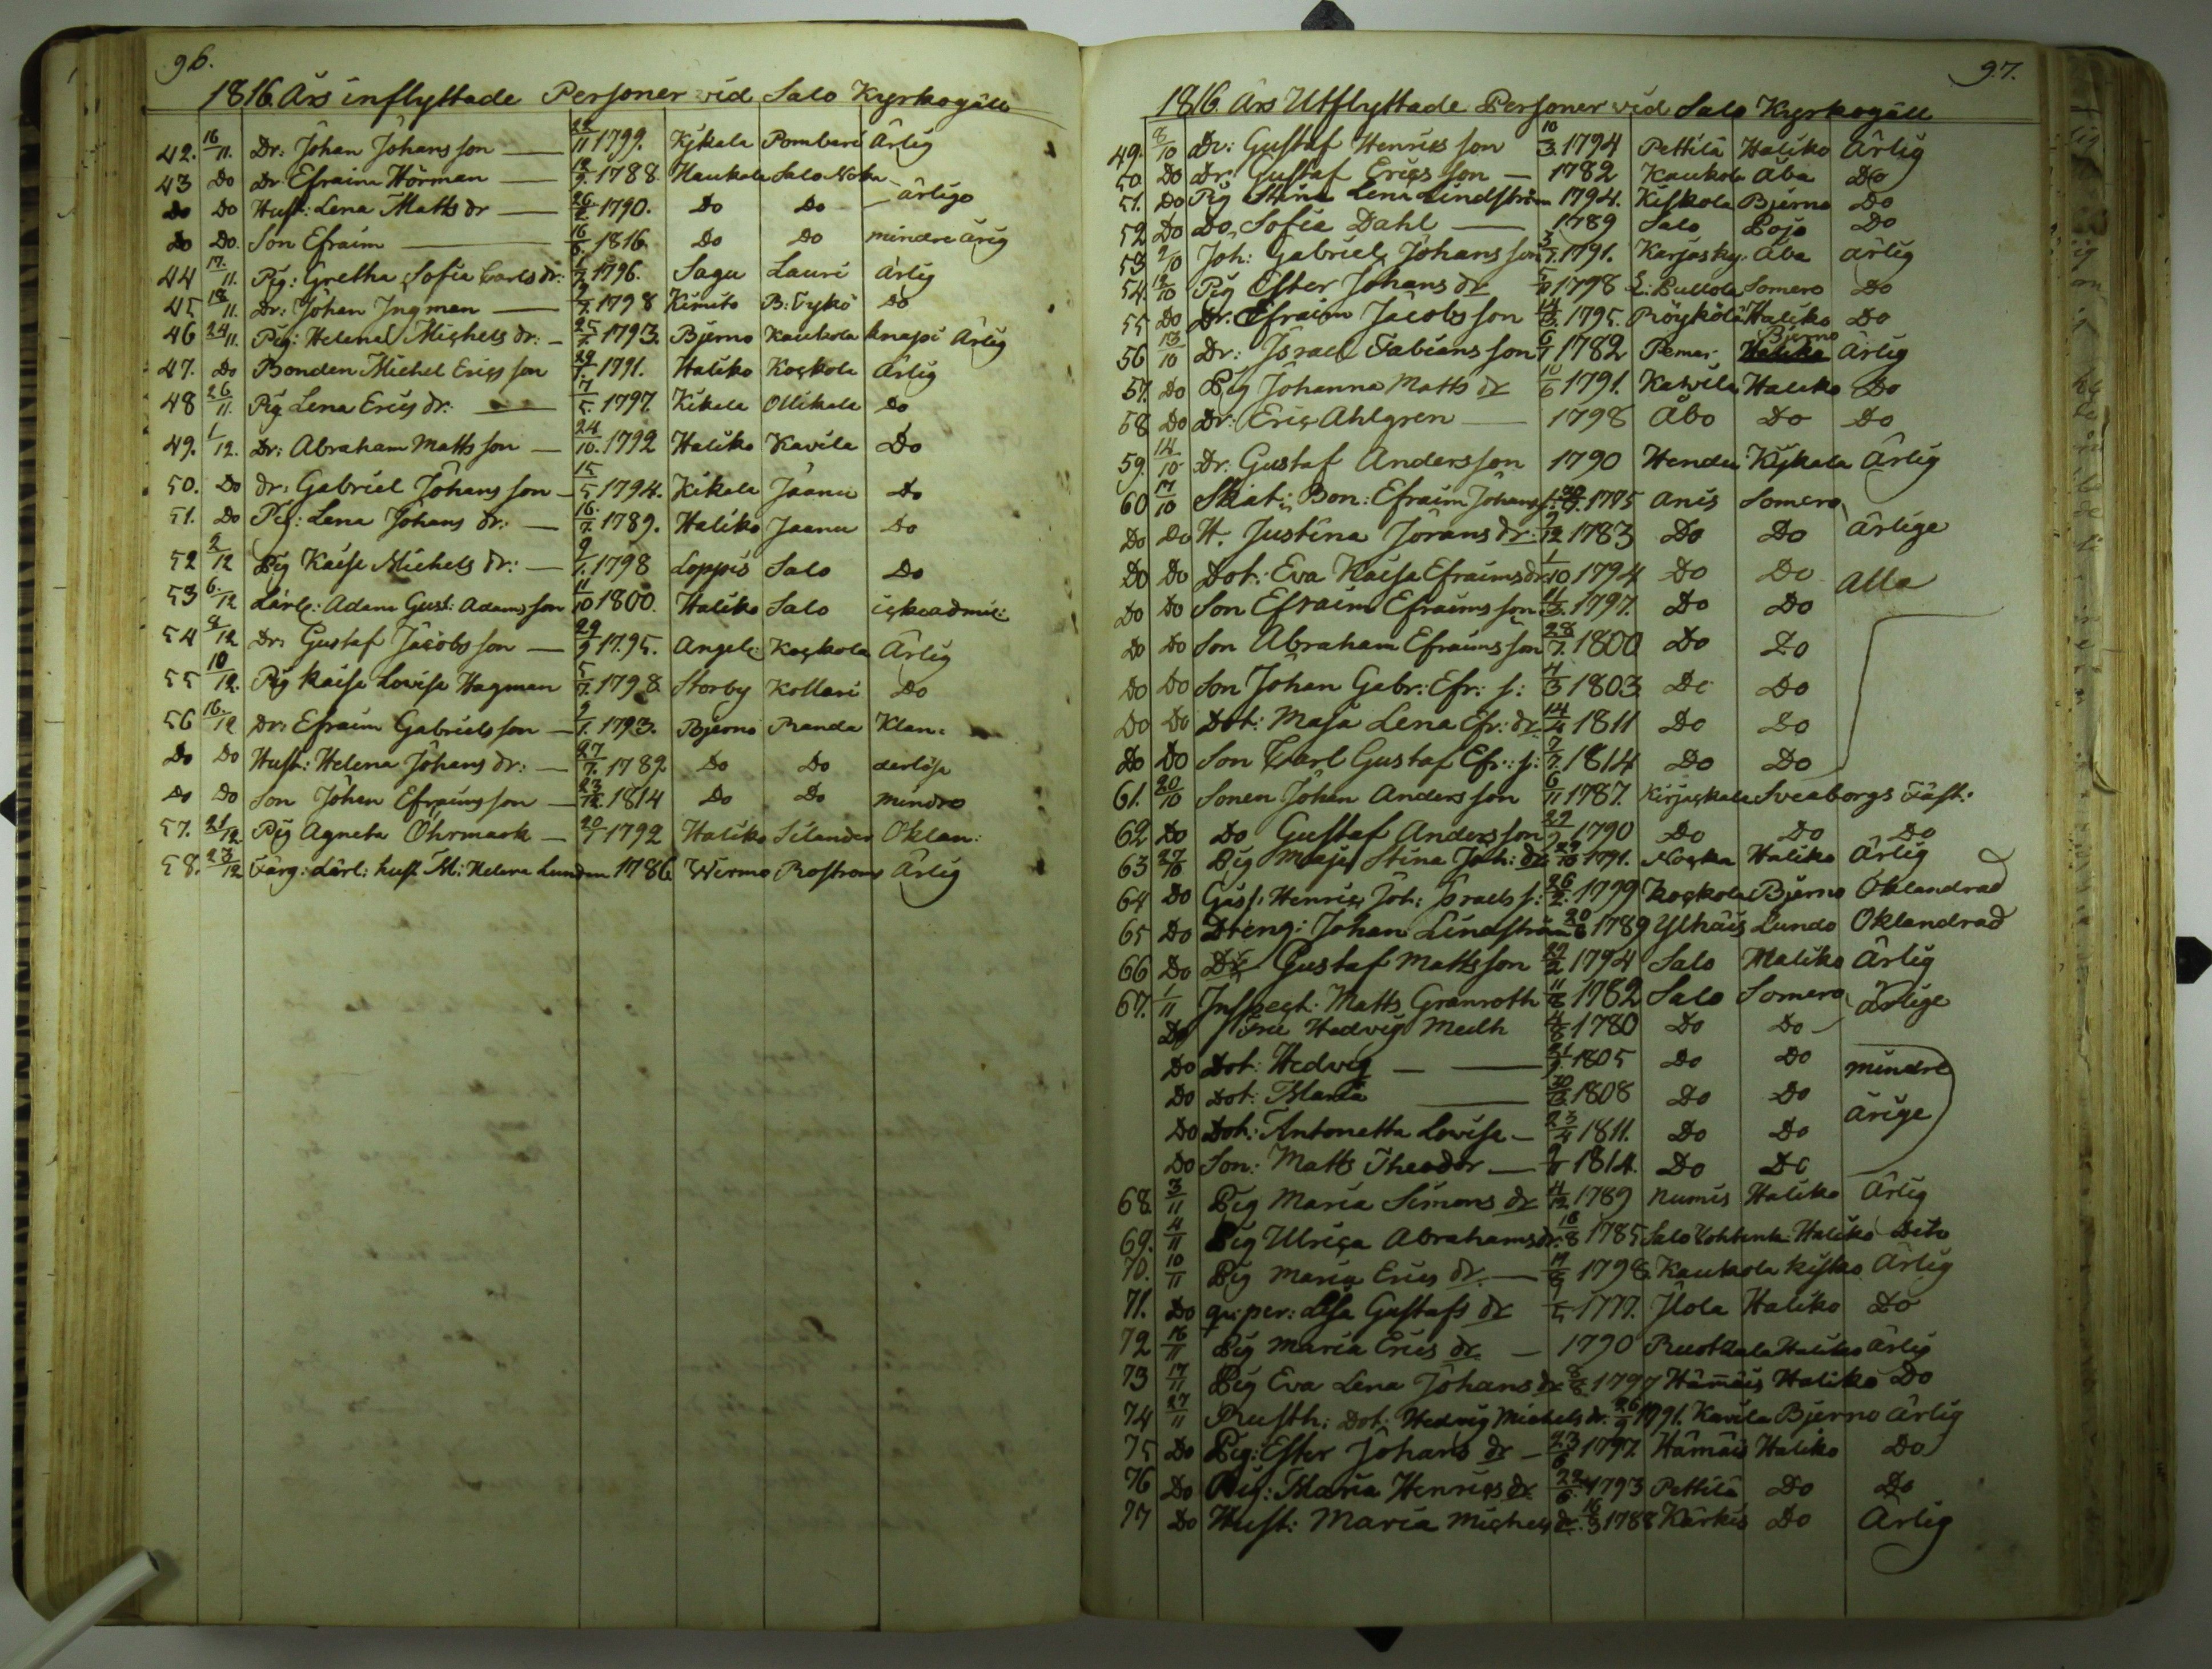 96.
1816 Års inflyttade Personer vid Salo Kyrkogäll
42. 16/11. Dr: Johan Johans son — 22/11 1799. Kykala Pombari Ärlig
43 Do Dr Efraim Hörman — 1788 Haukala Salo
Do Do Hust: Lena Matts dr — 26/2. 1790. Do Do ärlige
Do Do. Son Efraim — 16/6. 1816. Do Do mindre årig
44 17./11. Pig: Gretha Sofia Carls dr: 1796. Sagu Lauri Ärlig
45 18/11. Dr: Johan Ingman — 1798 Kimito B: Tykö Do
46 24/11. Pig: Helena Michels dr: — 25/7. 1793. Bjerno Kaukola knapt Ärlig
47. Do Bonden Michel Erics son 29/9. 1791. Haliko Kockola Ärlig
48 26/11. Pig Lena Erics dr: — 7/5. 1797. Kikala Ollikala Do
49. 1/12. Dr: Abraham Matts son — 24/10. 1792 Haliko Kavila Do
50. Do dr: Gabriel Johans son — 15/5 1794. Kikala Jaanu Do
51. Do Pig: Lena Johans dr: — 16./7. 1789. Haliko Jaanu Do
52 2/12 Pig Kaisa Michels dr: — 9/1. 1798 Loppis Salo Do
53 6./12 Lärl: Adam Gust: Adams son 11/10 1800. Haliko Salo
54 8/12 Dr: Gustaf Jacobs son — 29/9 1795. Angel: Kockola Ärlig
55 10/12. Pig Kaisa Lovisa Hagman 5/7. 1798. Storby Kollari Do
56 16./12 Dr: Efraim Gabriels son — 9/1. 1793. Bjerno Randa Klan=
Do Do Hust: Helena Johans dr: — 27/7. 1782 Do Do derlösa
Do Do Son Johan Efraims son — 23/12. 1814 Do Do mindre
57. 21/12 Pig Agneta Öhrmark — 20/1 1792 Haliko Silander Oklan:
58. 23/12 Färg: Lärl: hust M: Helena Lundm 1786 Wirmo Rostrom Ärlig
97.
1816 Års Utflyttade Personer vid Salo Kyrkogäll
49. 8/10 Dr: Gustaf Henrics son 10/3. 1794 Pettilä Haliko Ärlig
50 Do Dr: Gustaf Erics son — 1782 Kaukola Åbo Do
51. Do Pig Stina Lena Lindström 1794. Kiskola Bjerno Do
52 Do Do Sofia Dahl — 1789 Salo Pojo Do
53 9/10 Joh: Gabriel Johans son 3/7. 1791. Karjasky. Åbo ärlig
54. 12/10 Pig Ester Johans dr 1798 L: Pullola Somero Do
55 Do Dr: Efraim Jacobs son 14/3. 1795. Röykölä Haliko Do
56 13/10 Dr: Israel Fabians son 6/1 1782 Pemar Bjerno Ärlig
57. Do Pig Johanna Matts dr 10/6 1791. Katvila Haliko Do
58 Do Dr: Eric Ahlgren — 1798 Åbo Do Do
59. 14/10 Dr. Gustaf Andersson 1790 Hendu Kijkala Ärlig
60 17/10 Skat: Bon: Efraim Johans s: 1775 Anis Somero
Do Do H. Justina Jörans dr: 9/12 1783 Do Do ärlige
Do Do Dot: Eva Kaisa Efraims dr. 1/10 1794 Do Do alla
Do Do Son Efraim Efraims son 11/3. 1797. Do Do
Do Do Son Abraham Efraims son 28/7. 1800 Do Do
Do Do Son Johan Gabr: Efr: s: 4/3 1803 Do Do
Do Do Dot: Maja Lena Efr: dr. 14/4 1811 Do Do
Do Do Son Carl Gustaf Efr: s: 7/7. 1814 Do Do
61. 20/10 Sonen Johan Anders son 6/11 1787. Kirjackala Sveaborgs Fäst.
62 Do Do Gustaf Andersson 1790 Do Do Do
63 27/10 Pig Maja Stina Joh: dr 29/10 1791. Nocka Haliko Ärlig
64 Do Gäst: Henric Joh: Israels s: 26/2. 1799 Kockola Bjerno Oklandrad
65 Do Dreng: Johan Lindström 20/6 1789 Ylhäis Lundo Oklandrad
66 Do Dr Gustaf Mattsson 1794 Salo Haliko Ärlig
67. 1/11 Inspect. Matts Granroth 1782 Salo Somero ärlige
Do Fru Hedvig Meilh 4/8 1780 Do Do
Do Dot: Hedvig — 1805 Do Do mindre
Do Dot: Maria — 1808 Do Do
Do Dot: Antonetta Lovisa — 23/4 1811. Do Do årige
Do Son: Matts Theodor — 1814. Do Do
68. 3/11 Pig Maria Simons dr 4/12 1789 Numis Haliko Ärlig
69. 4/11 Pig Ulrica Abrahams dr. 18/8 1785 Salo Haliko Dito
70. 10/11 Pig Maria Erics dr. — 1798. Kaukola Kisko Ärlig
71. Do qv: per: Lisa Gustafs dr 9/5 1777. Ilola Haliko Do
72 16/11 Pig Maria Erics dr. — 1790 Ruotkala Haliko Ärlig
73 17/11 Pig Eva Lena Johans dr 1797 Hämäis Haliko Do
74 27/11 Rusth: Dot: Hedvig Michels dr. 26/9 1791. Kavila Bjerno Ärlig
75 Do Pig: Ester Johans dr — 23/6 1797. Hämäis Haliko Do
76 Do Pig: Maria Henrics dr. 22/6. 1793 Pettilä Do Do
77 Do Hust: Maria Michels dr. 16/3 1788 Kärkis Do Ärlig